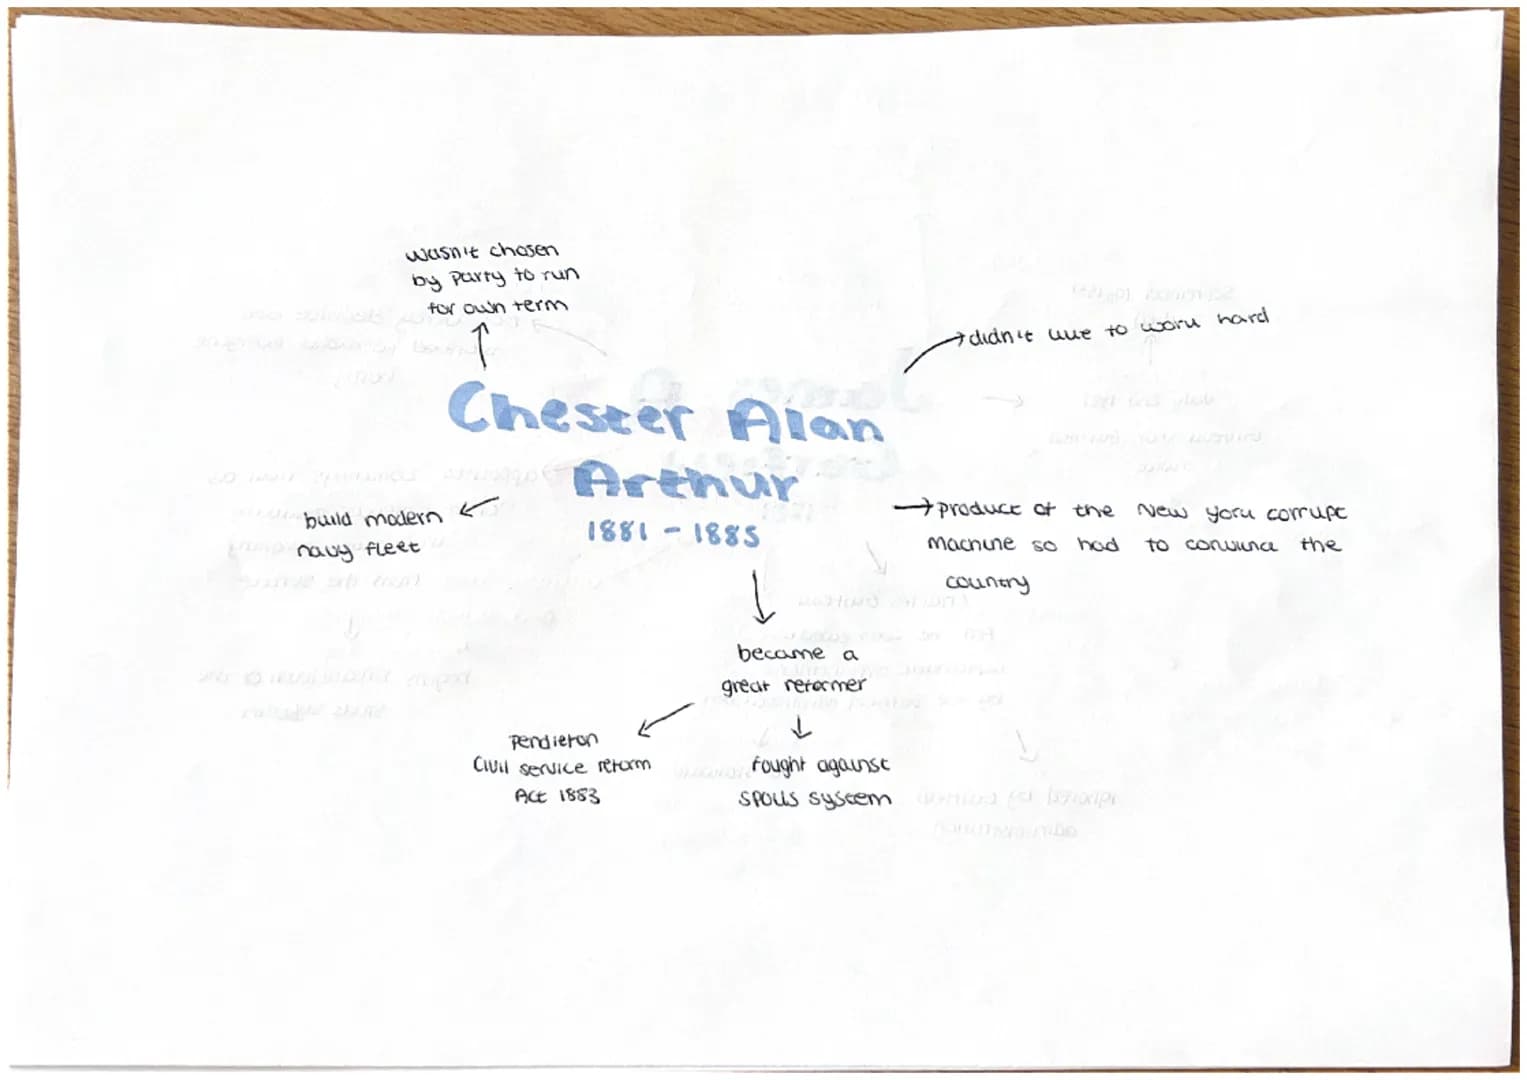 wasn't chosen
by party to run
for own term
didn't like to work hard
Chester Alan
Arthur
1881 - 1885
build modern
navy fleet
product of the New York corrupt
machine so had to convince the
country
became a
great reformer
Pendleton
Civil service reform
Act 1883
fought against
spoils system